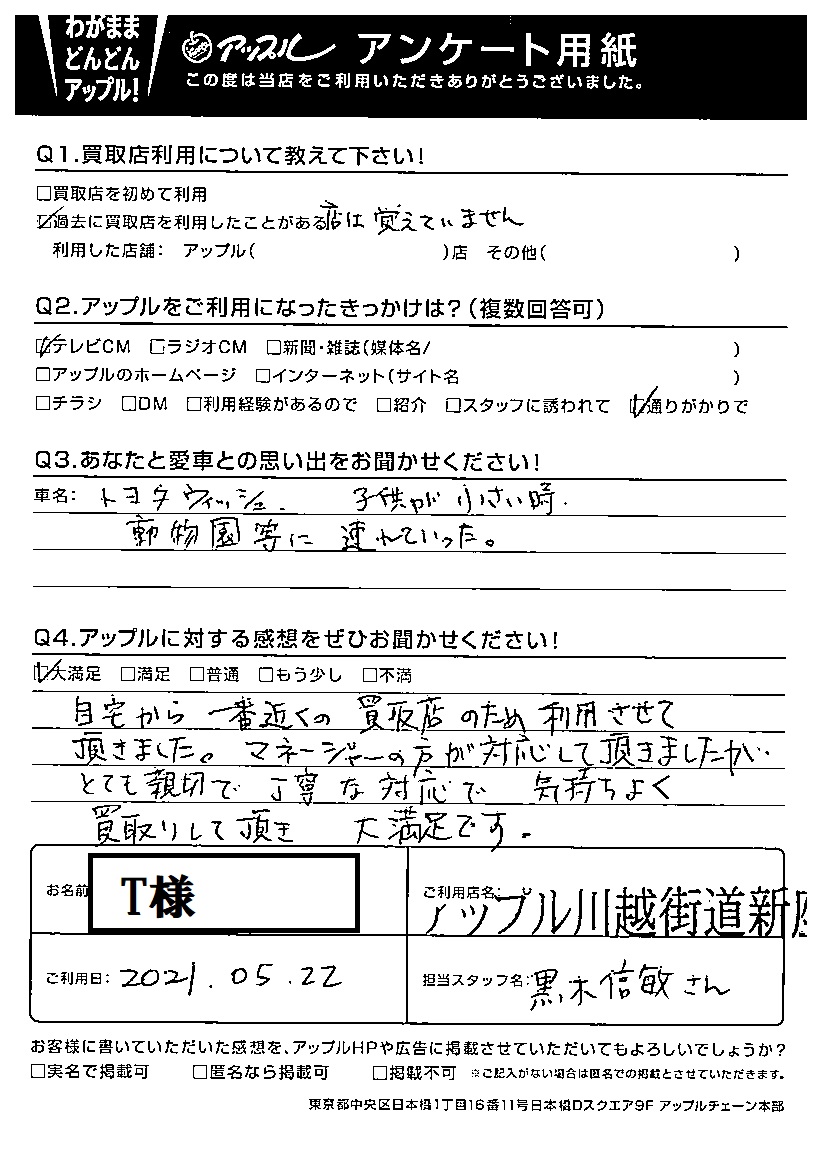 わがまま
どんどん
アップル!
アップル アンケート用紙
この度は当店をご利用いただきありがとうございました。
Q1.買取店利用について教えて下さい!
□買取店を初めて利用
☑過去に買取店を利用したことがある 店は覚えていません
利用した店舗: アップル( )店 その他( )
Q2.アップルをご利用になったきっかけは?(複数回答可)
☑テレビCM □ラジオCM □新聞・雑誌(媒体名/ )
□アップルのホームページ □インターネット(サイト名 )
□チラシ □DM □利用経験があるので □紹介 □スタッフに誘われて ☑通りがかりで
Q3.あなたと愛車との思い出をお聞かせください!
車名: トヨタ ウィッシュ. 子供が小さい時.
動物園等に連れていった。
Q4.アップルに対する感想をぜひお聞かせください!
☑大満足 □満足 □普通 □もう少し □不満
自宅から一番近くの買取店のため利用させて
頂きました。マネージャーの方が対応して頂きましたが.
とても親切で丁寧な対応で 気持ちよく
買取りして頂き 大満足です.
お名前 T様
ご利用店名: アップル川越街道新座
ご利用日: 2021.05.22
担当スタッフ名: 黒木信敏さん
お客様に書いていただいた感想を、アップルHPや広告に掲載させていただいてもよろしいでしょうか?
□実名で掲載可 □匿名なら掲載可 □掲載不可 ※ご記入がない場合は匿名での掲載とさせていただきます。
東京都中央区日本橋1丁目16番11号日本橋Dスクエア9F アップルチェーン本部